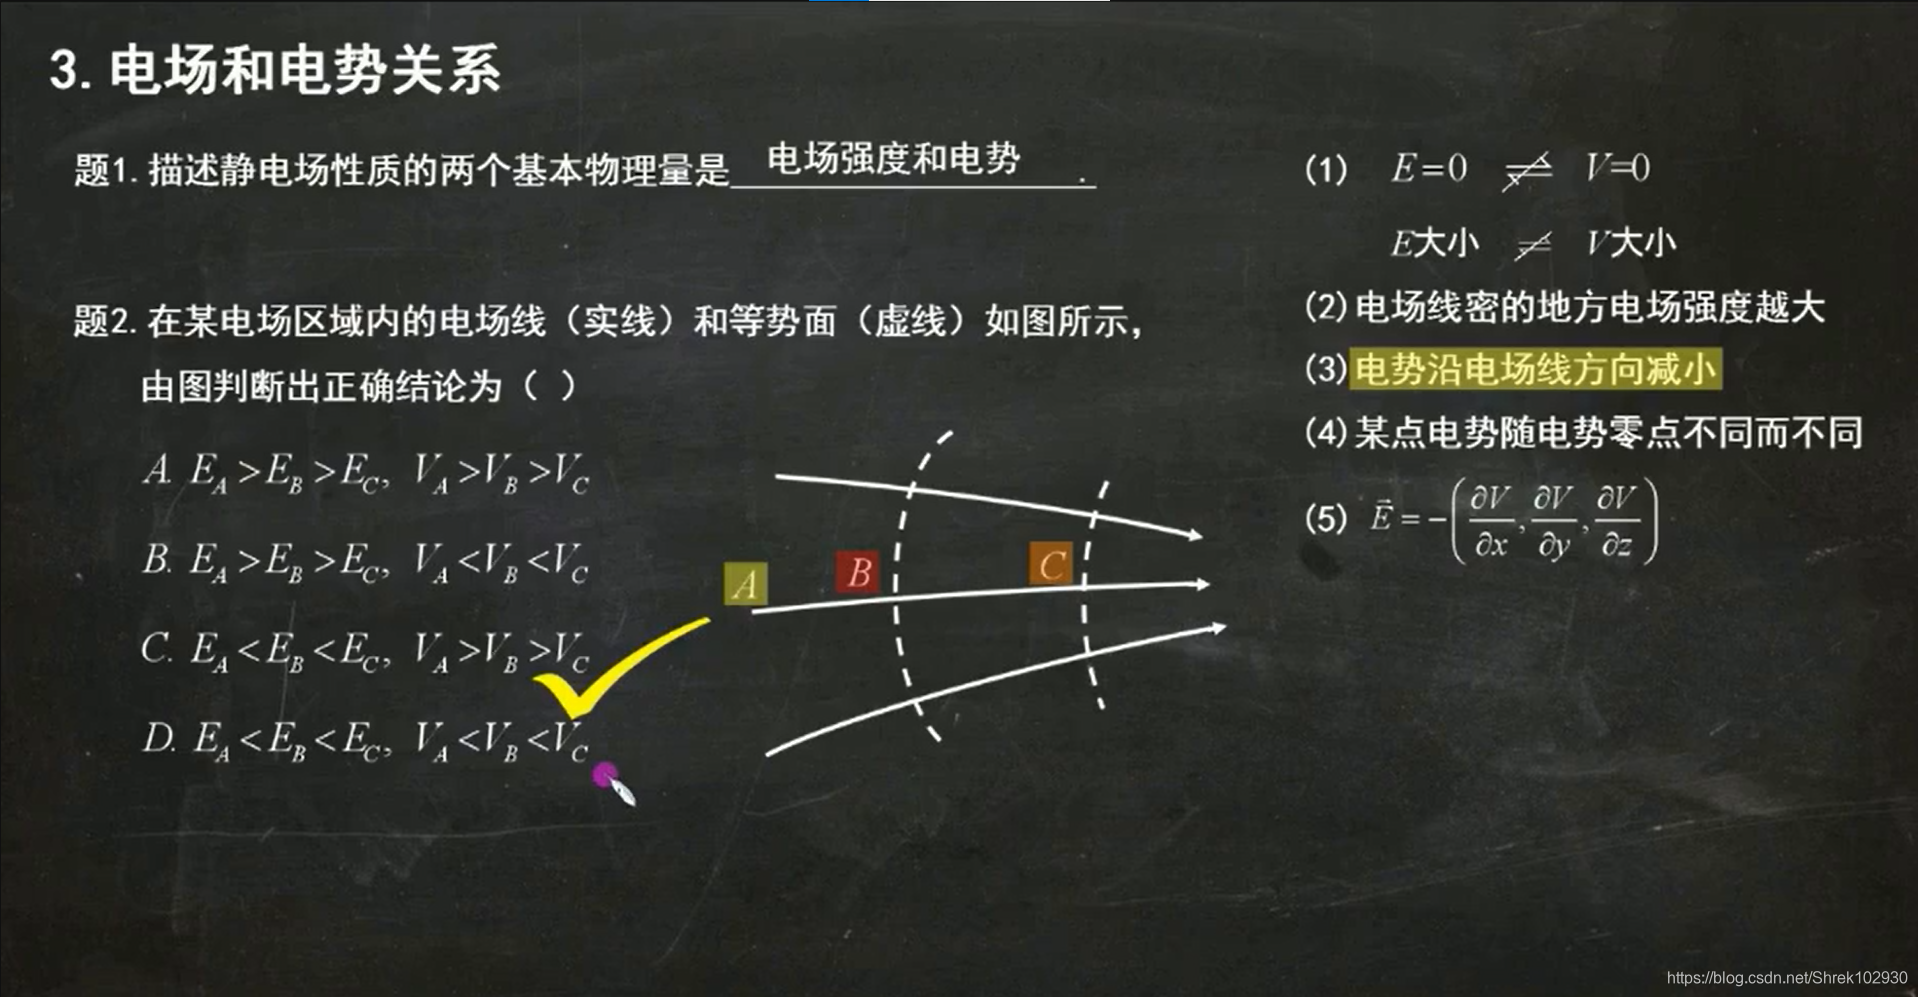 3. 电场和电势关系
题1. 描述静电场性质的两个基本物理量是 电场强度和电势 .
题2. 在某电场区域内的电场线（实线）和等势面（虚线）如图所示，
由图判断出正确结论为（ ）
A. E_A > E_B > E_C, V_A > V_B > V_C
B. E_A > E_B > E_C, V_A < V_B < V_C
C. E_A < E_B < E_C, V_A > V_B > V_C
D. E_A < E_B < E_C, V_A < V_B < V_C
A
B
C
(1) E=0 ≠ V=0
E大小 ≠ V大小
(2) 电场线密的地方电场强度越大
(3) 电势沿电场线方向减小
(4) 某点电势随电势零点不同而不同
(5) E⃗ = −(∂V/∂x, ∂V/∂y, ∂V/∂z)
https://blog.csdn.net/Shrek102930